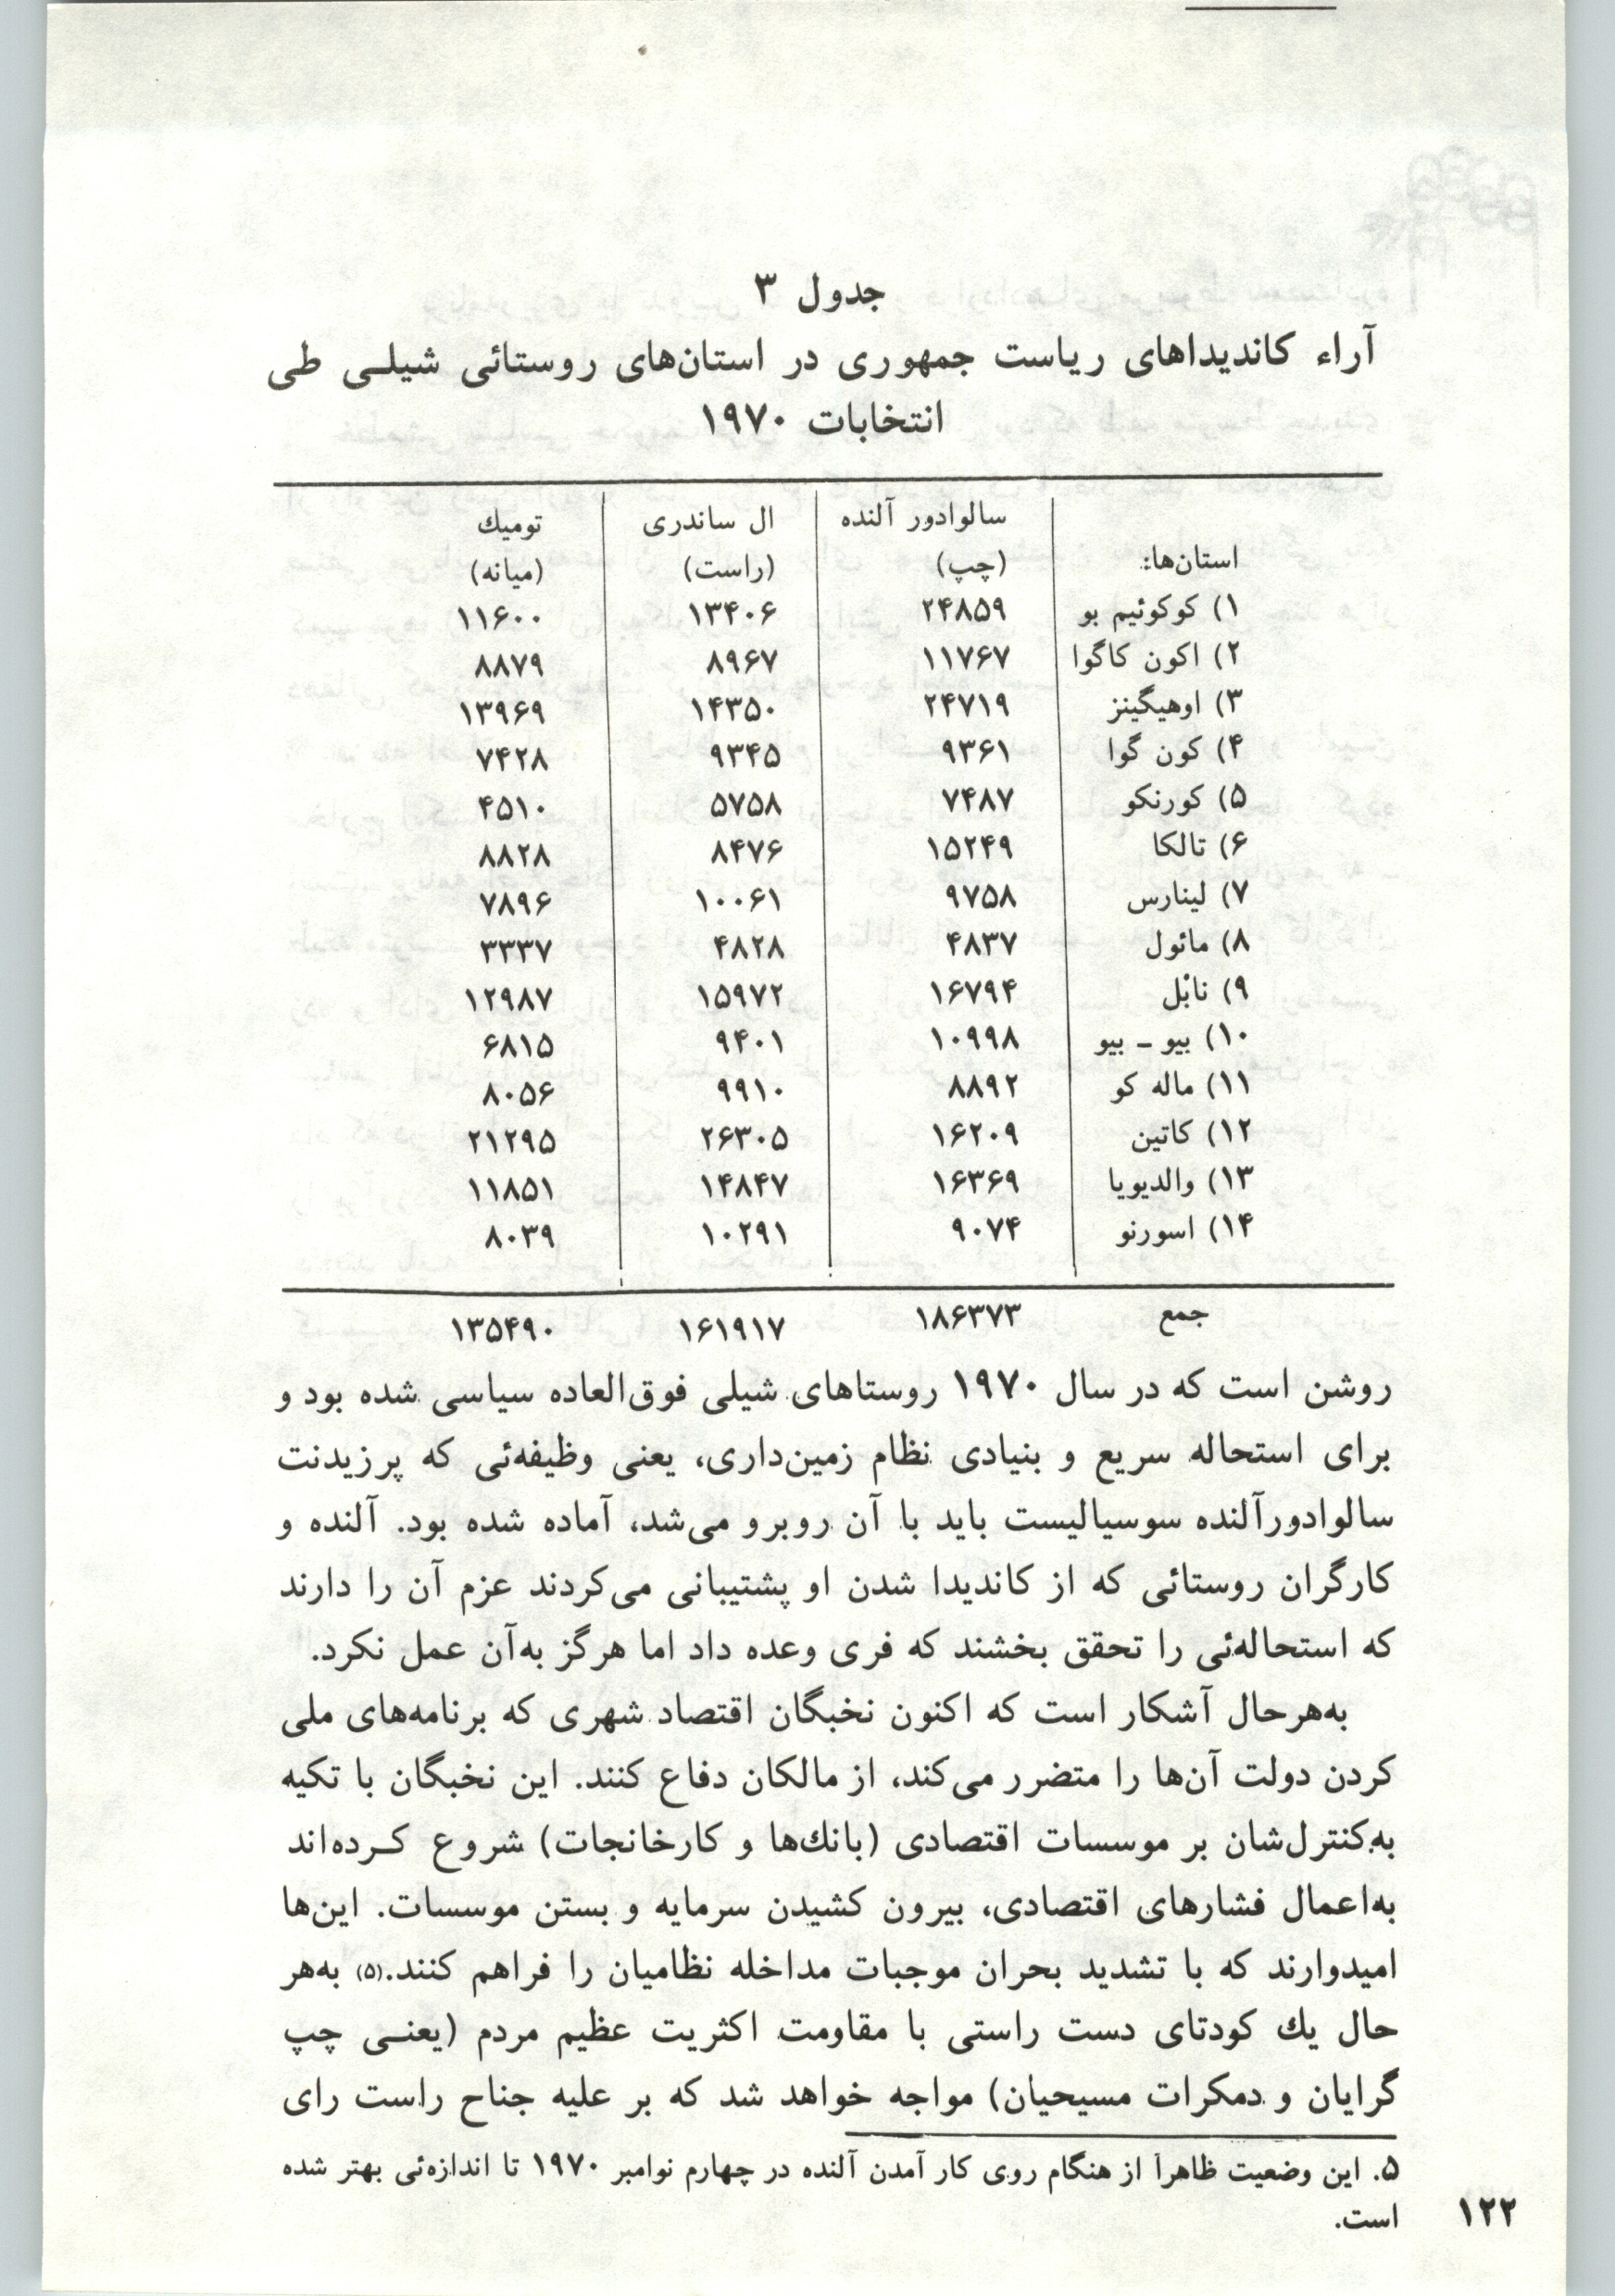 جدول ۳
آراء کاندیداهای ریاست جمهوری در استان‌های روستائی شیلـی طی
انتخابات ۱۹۷۰
استان‌ها: سالوادور آلنده (چپ) ال ساندری (راست) تومیك (میانه)
۱) کوکوئیم بو ۲۴۸۵۹ ۱۳۴۰۶ ۱۱۶۰۰
۲) اکون کاگوا ۱۱۷۶۷ ۸۹۶۷ ۸۸۷۹
۳) اوهیگینز ۲۴۷۱۹ ۱۴۳۵۰ ۱۳۹۶۹
۴) کون گوا ۹۳۶۱ ۹۳۴۵ ۷۴۲۸
۵) کورنکو ۷۴۸۷ ۵۷۵۸ ۴۵۱۰
۶) تالکا ۱۵۲۴۹ ۸۴۷۶ ۸۸۲۸
۷) لینارس ۹۷۵۸ ۱۰۰۶۱ ۷۸۹۶
۸) مائول ۴۸۳۷ ۴۸۲۸ ۳۳۳۷
۹) نابْل ۱۶۷۹۴ ۱۵۹۷۲ ۱۲۹۸۷
۱۰) بیو ـ بیو ۱۰۹۹۸ ۹۴۰۱ ۶۸۱۵
۱۱) ماله کو ۸۸۹۲ ۹۹۱۰ ۸۰۵۶
۱۲) کاتین ۱۶۲۰۹ ۲۶۳۰۵ ۲۱۲۹۵
۱۳) والدیویا ۱۶۳۶۹ ۱۴۸۴۷ ۱۱۸۵۱
۱۴) اسورنو ۹۰۷۴ ۱۰۲۹۱ ۸۰۳۹
جمع ۱۸۶۳۷۳ ۱۶۱۹۱۷ ۱۳۵۴۹۰
روشن است که در سال ۱۹۷۰ روستاهای شیلی فوق‌العاده سیاسی شده بود و
برای استحاله سریع و بنیادی نظام زمین‌داری، یعنی وظیفه‌ئی که پرزیدنت
سالوادورآلنده سوسیالیست باید با آن روبرو می‌شد، آماده شده بود. آلنده و
کارگران روستائی که از کاندیدا شدن او پشتیبانی می‌کردند عزم آن را دارند
که استحاله‌ئی را تحقق بخشند که فری وعده داد اما هرگز به‌آن عمل نکرد.
به‌هرحال آشکار است که اکنون نخبگان اقتصاد شهری که برنامه‌های ملی
کردن دولت آن‌ها را متضرر می‌کند، از مالکان دفاع کنند. این نخبگان با تکیه
به‌کنترل‌شان بر موسسات اقتصادی (بانك‌ها و کارخانجات) شروع کـرده‌اند
به‌اعمال فشارهای اقتصادی، بیرون کشیدن سرمایه و بستن موسسات. این‌ها
امیدوارند که با تشدید بحران موجبات مداخله نظامیان را فراهم کنند.(۵) به‌هر
حال یك کودتای دست راستی با مقاومت اکثریت عظیم مردم (یعنـی چپ
گرایان و دمکرات مسیحیان) مواجه خواهد شد که بر علیه جناح راست رای
۵. این وضعیت ظاهراً از هنگام روی کار آمدن آلنده در چهارم نوامبر ۱۹۷۰ تا اندازه‌ئی بهتر شده
است.
۱۲۲